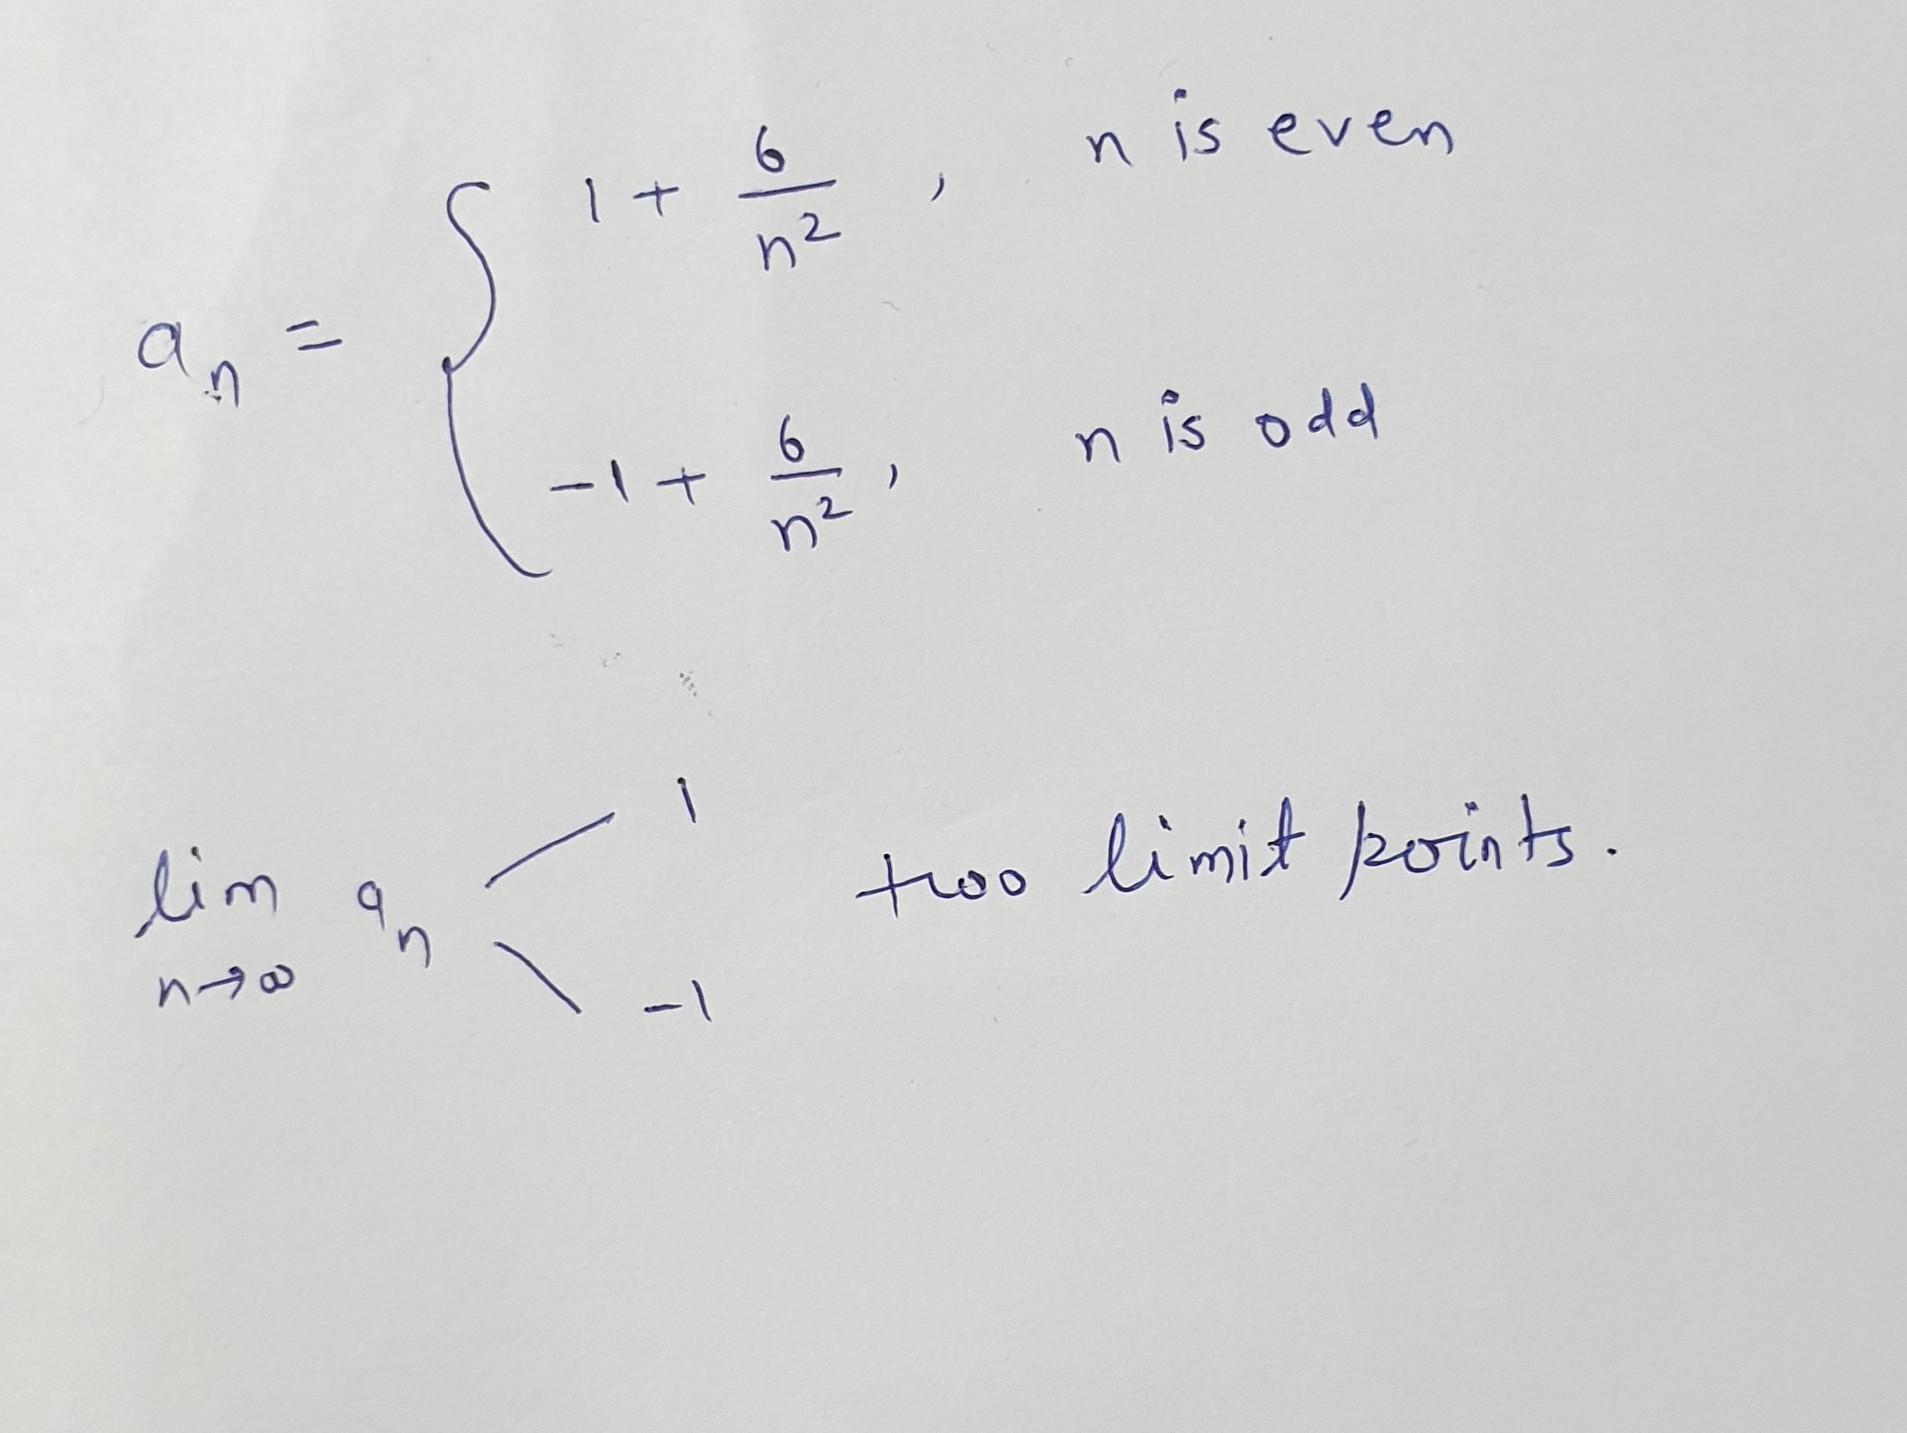 1 + 6/n² , n is even
aₙ = {
-1 + 6/n² , n is odd
lim n→∞ aₙ 1
-1
two limit points.